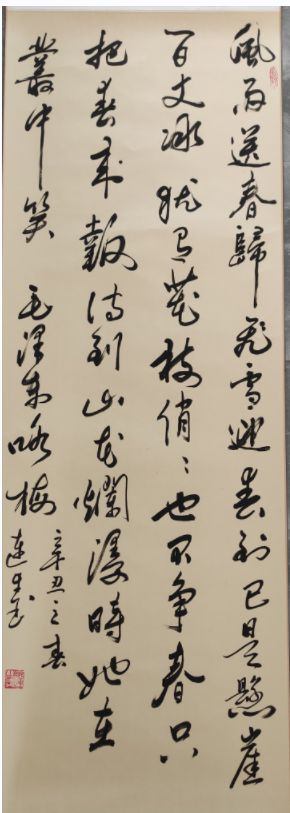 風雨送春歸飛雪迎春到已是懸崖
百丈冰猶有花枝俏〻也不争春只
把春來報待到山花爛漫時她在
叢中笑 毛澤東咏梅
辛丑之春